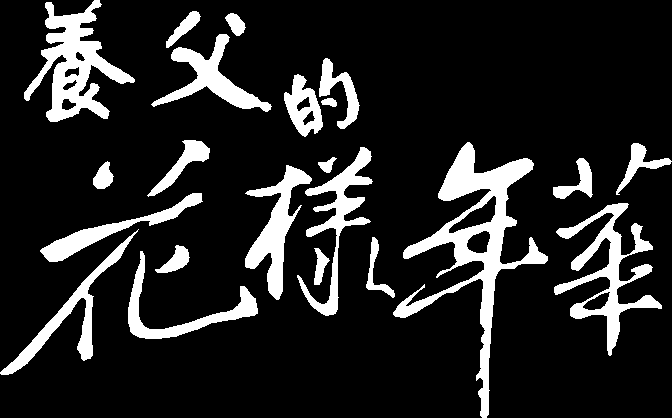 養父的
花樣年華